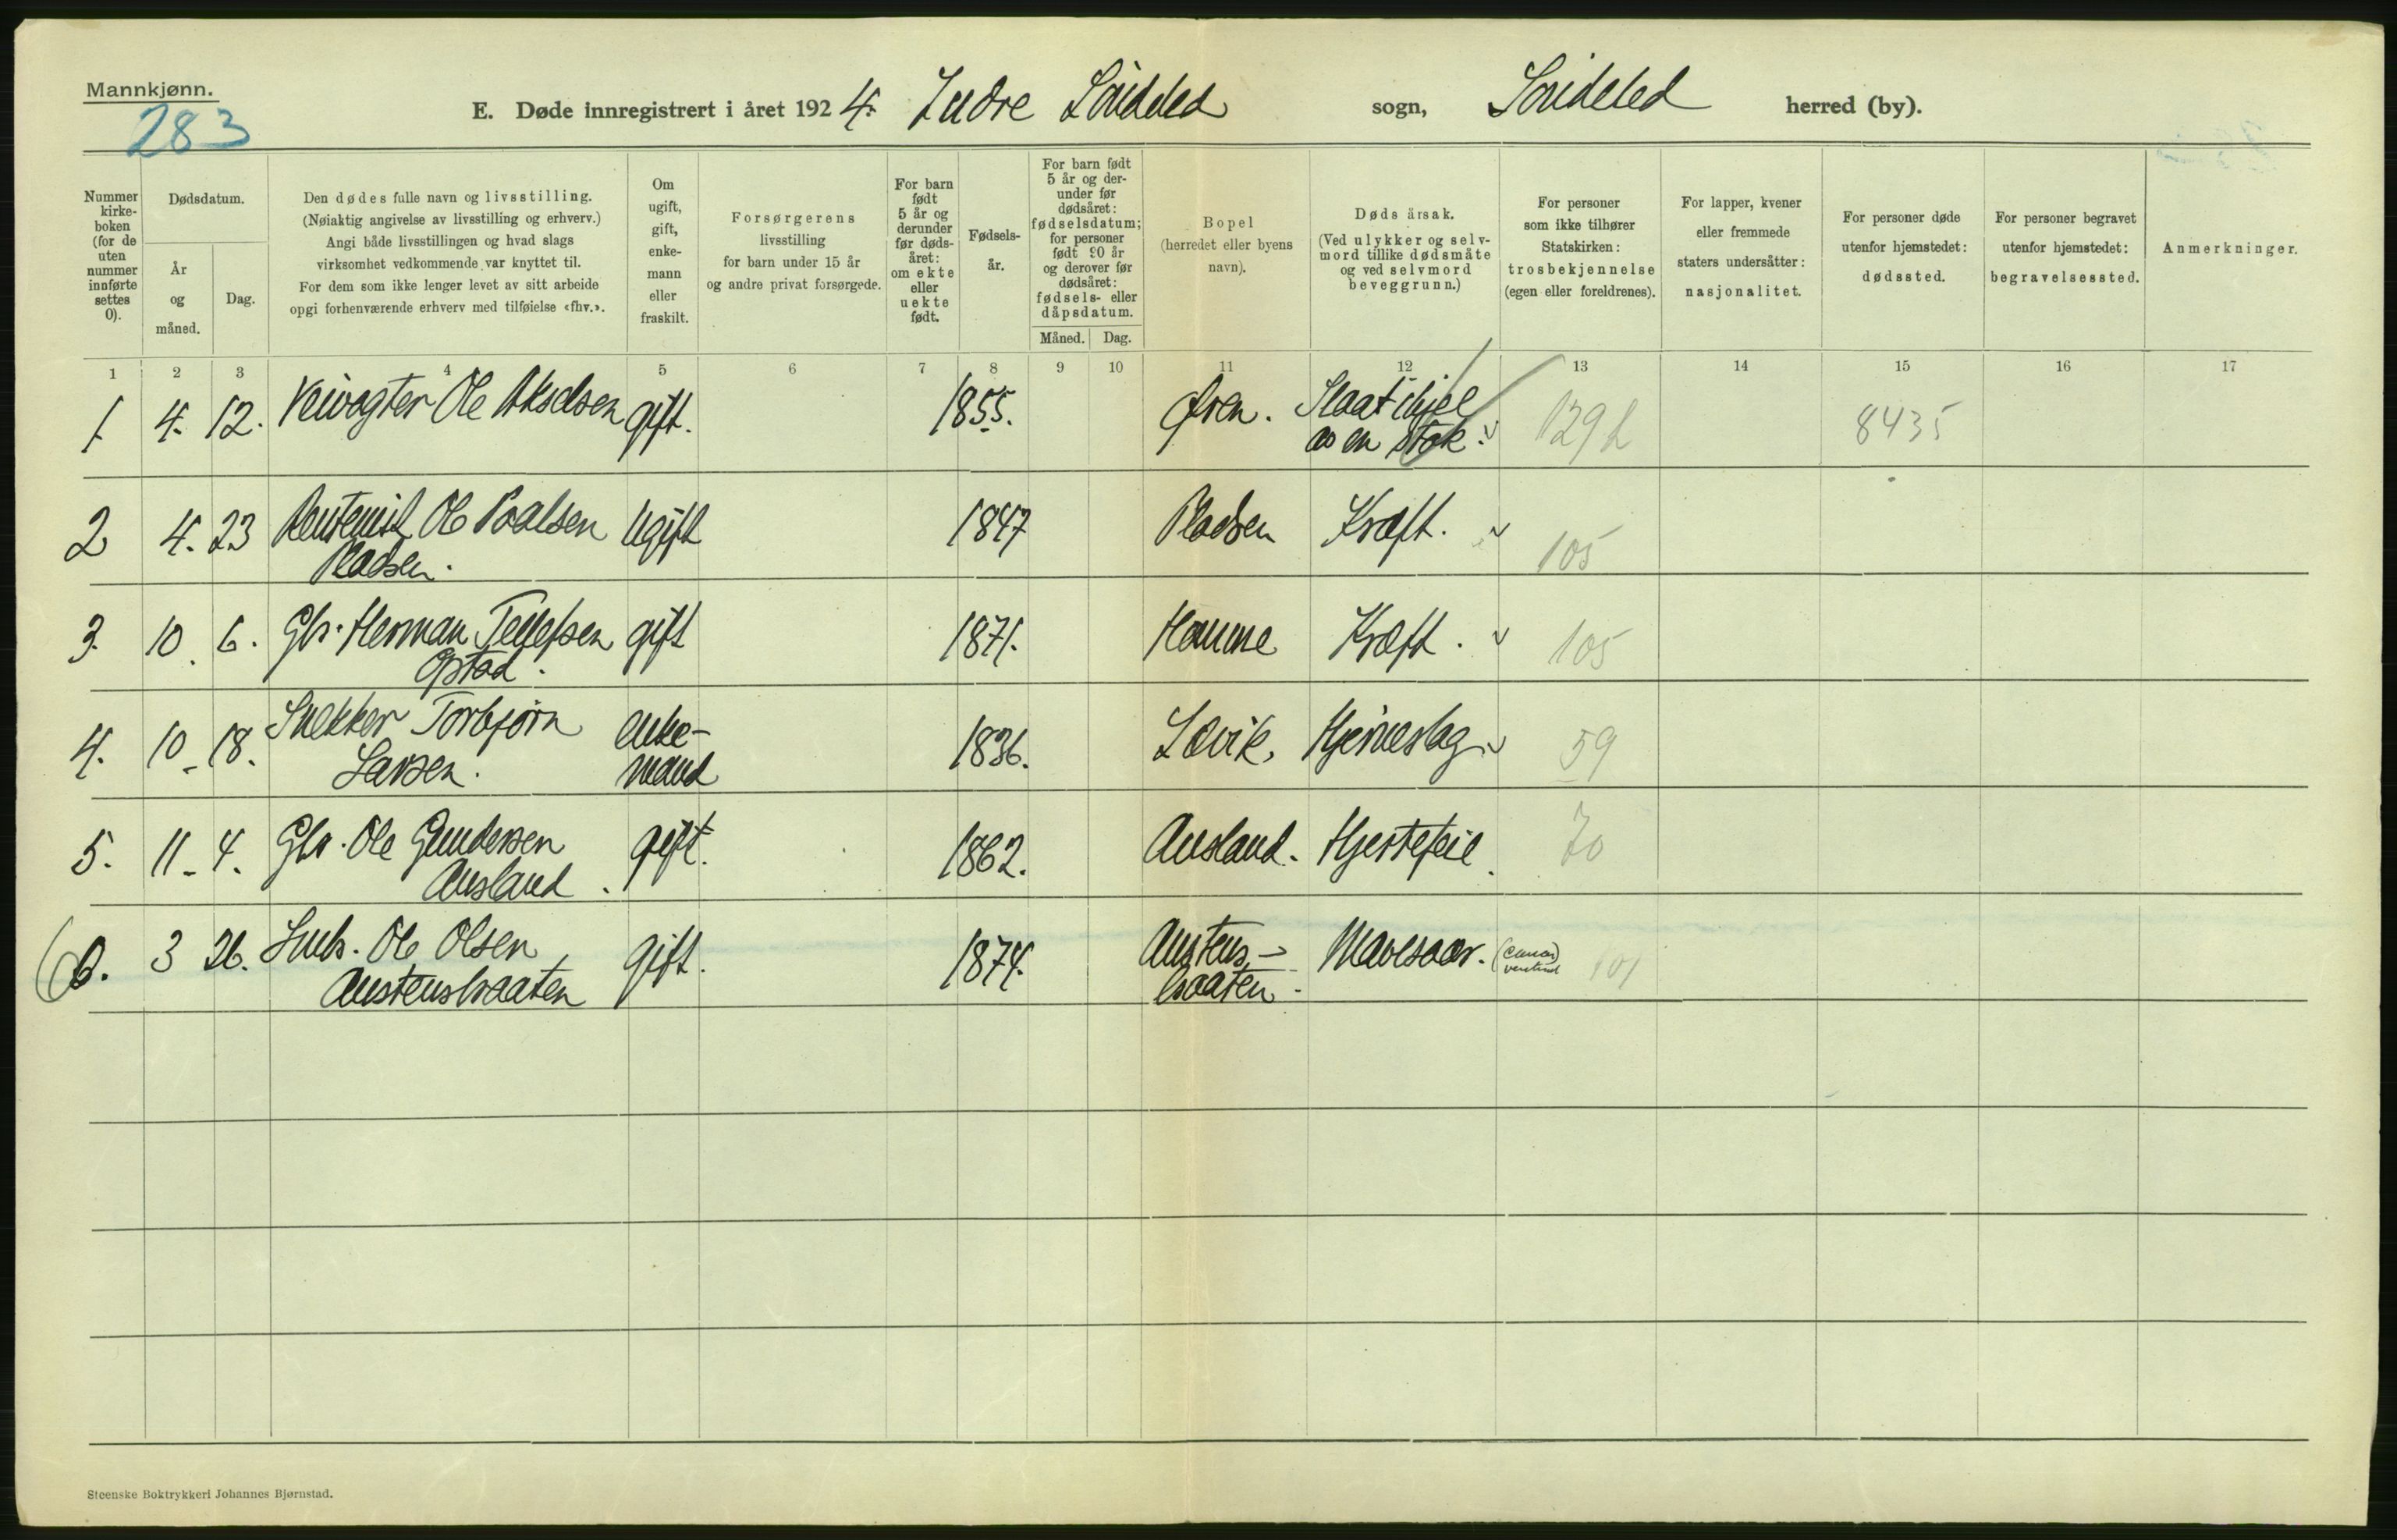 Mannkjønn.
283
E. Døde innregistrert i året 1924. Indre Söideled sogn, Söideled herred (by).
Nummer kirke- boken (for de uten nummer innførte settes 0).
Dødsdatum.
År og måned.
Dag.
Den dødes fulle navn og livsstilling.
(Nøiaktig angivelse av livsstilling og erhverv.)
Angi både livsstillingen og hvad slags
virksomhet vedkommende var knyttet til.
For dem som ikke lenger levet av sitt arbeide
opgi forhenværende erhverv med tilføielse «fhv.».
Om ugift, gift, enke- mann eller fraskilt.
Forsørgerens
livsstilling
for barn under 15 år
og andre privat forsørgede.
For barn født 5 år og derunder før døds- året: om ekte eller uekte født.
Fødsels- år.
For barn født 5 år og der- under før dødsåret: fødselsdatum; for personer født 90 år og derover før dødsåret: fødsels- eller dåpsdatum.
Måned. Dag.
Bopel
(herredet eller byens
navn).
Døds årsak.
(Ved ulykker og selv-
mord tillike dødsmåte
og ved selvmord
beveggrunn.)
For personer
som ikke tilhører
Statskirken:
trosbekjennelse
(egen eller foreldrenes).
For lapper, kvener
eller fremmede
staters undersåtter:
nasjonalitet.
For personer døde
utenfor hjemstedet:
dødssted.
For personer begravet
utenfor hjemstedet:
begravelsessted.
Anmerkninger.
1 2 3 4 5 6 7 8 9 10 11 12 13 14 15 16 17
1. 4. 12. Veivogter Ole Akselsen gift. 1855. Øren. Slaat ihjel 8435
av en stok.
2 4. 23 Rentenist Ole Paalsen Ugift 1847 Pladsen Kræft. 105
Pladsen.
3. 10. 6. Gbr. Herman Tellefsen gift 1871. Hamme Kræft. 105
Opstad.
4. 10 - 18. Snekker Torbjørn enke- 1836. Lævik. Hjerneslag 59
Larsen. mand
5. 11 - 4. Gbr. Ole Gundersen gift. 1862. Ausland. Hjertefeil. 70
Ausland.
6. 3 26. Ole Olsen gift. 1874. Austens- Mavesaar. 101
Austensbraaten braaten.
Steenske Boktrykkeri Johannes Bjørnstad.